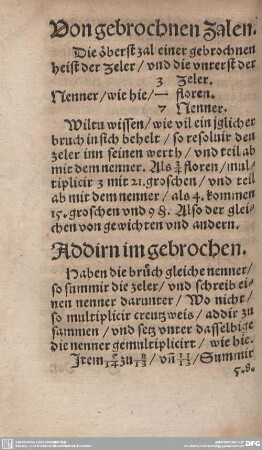 Von gebrochnen Zalen.
Die öberst zal einer gebrochnen
heist der Zeler / vnd die vnterst der
3 Zeler.
Nenner / wie hie / — floren.
7 Nenner.
Wiltu wissen / wie vil ein jglicher
bruch in sich behelt / so resoluir den
Zeler inn seinen werth / vnd teil ab
mit dem nenner. Als ¾ floren / mul=
tiplicir 3 mit 21. groschen / vnd teil
ab mit dem nenner / als 4. kommen
15. groschen vnd 9 ₰. Also der glei=
chen von gewichten vnd andern.
Addirn im gebrochen.
Haben die brüch gleiche nenner /
so summir die zeler / vnd schreib ei=
nen nenner darunter / Wo nicht /
so multiplicir creutzweis / addir zu
sammen / vnd setz vnter dasselbige
die nenner gemultiplicirt / wie hie.
Item 5/14 zu 8/13 / vñ 11/13 / Summir
5.8.
DFG